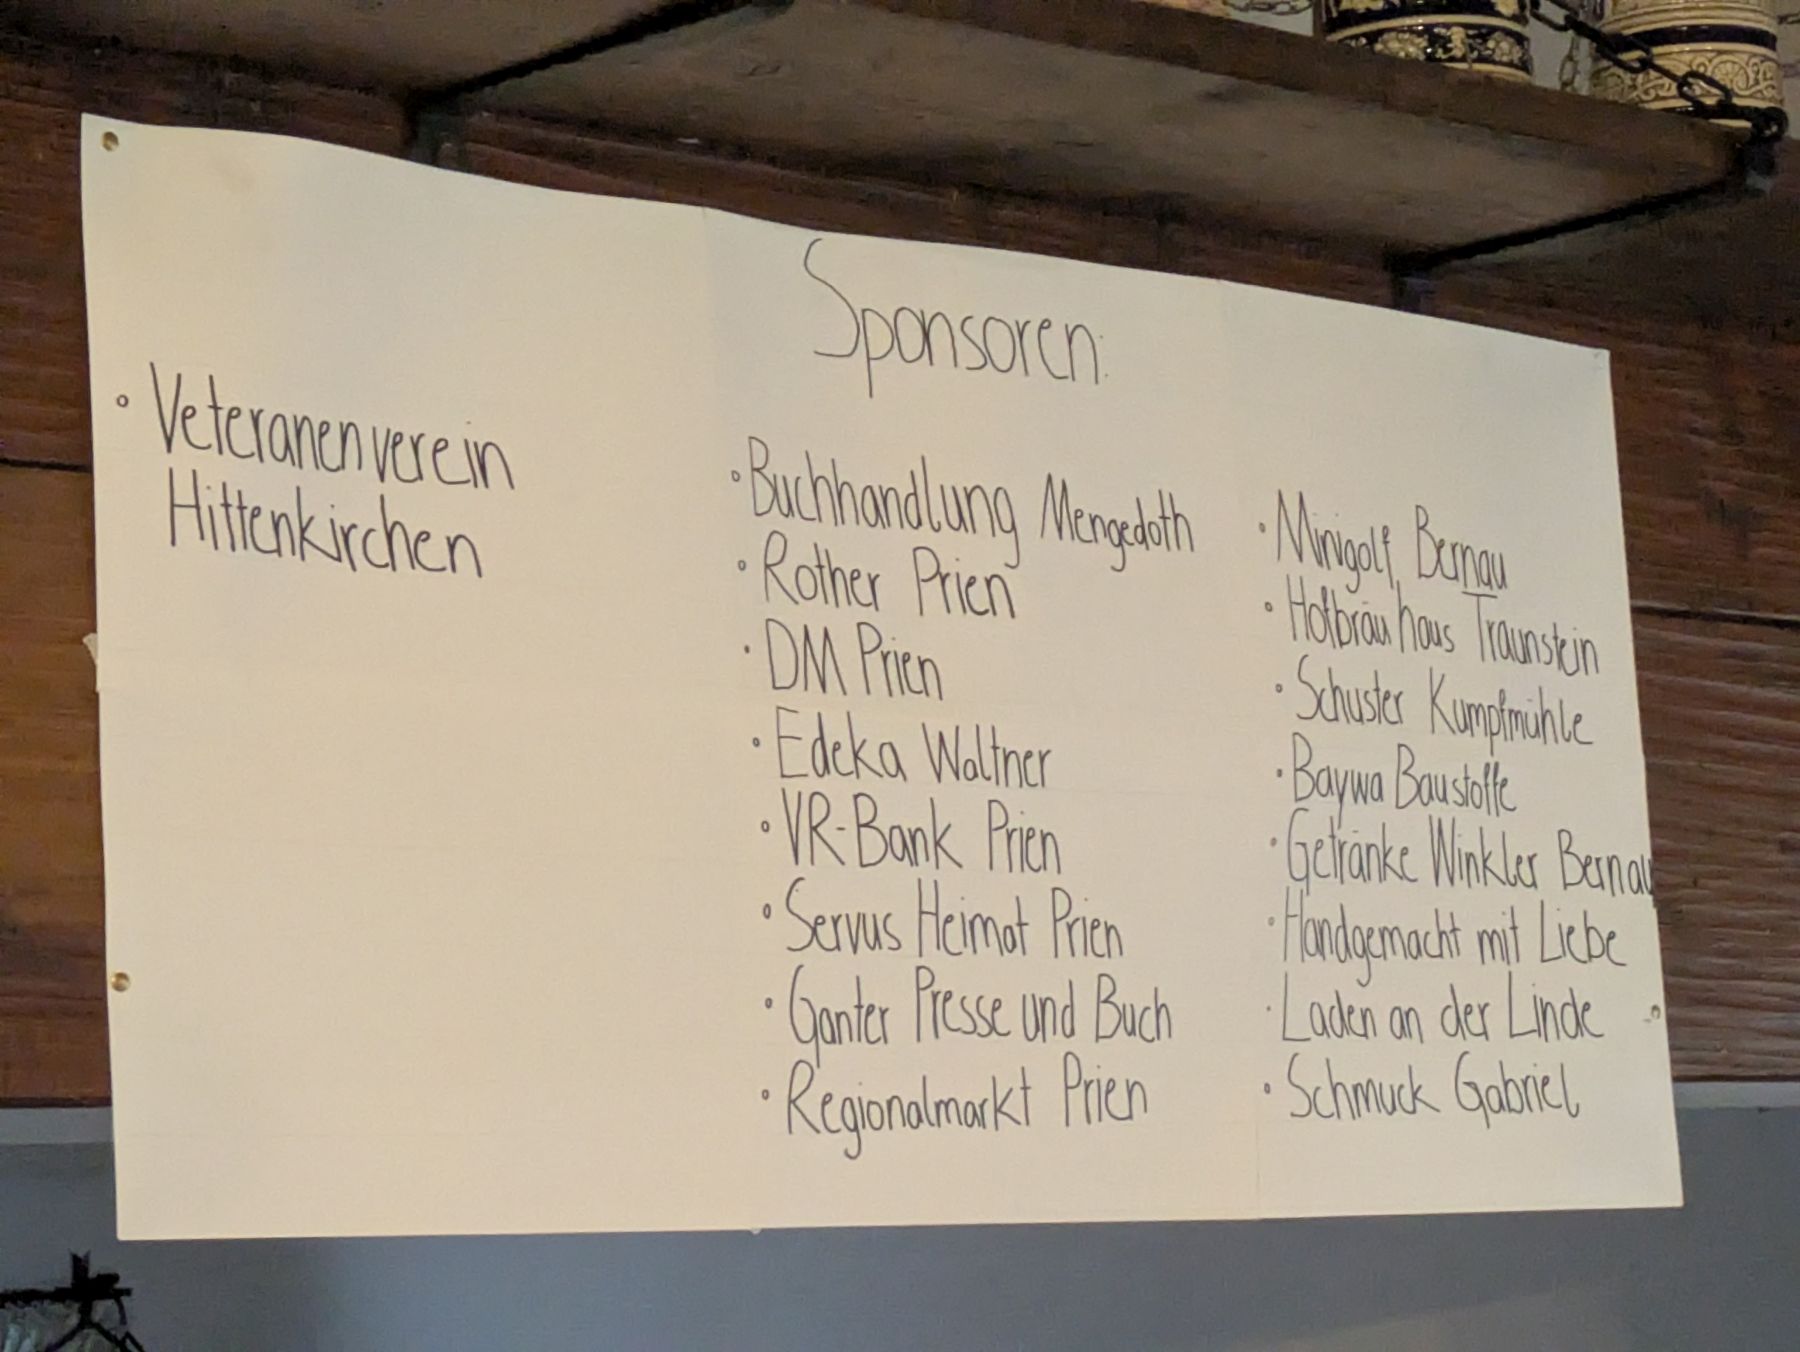 Sponsoren:
• Veteranenverein
Hittenkirchen
• Buchhandlung Mengedoth
• Rother Prien
• DM Prien
• Edeka Waltner
• VR-Bank Prien
• Servus Heimat Prien
• Ganter Presse und Buch
• Regionalmarkt Prien
• Minigolf Bernau
• Hofbräuhaus Traunstein
• Schuster Kumpfmühle
• Baywa Baustoffe
• Getränke Winkler Bernau
• Handgemacht mit Liebe
• Laden an der Linde
• Schmuck Gabriel